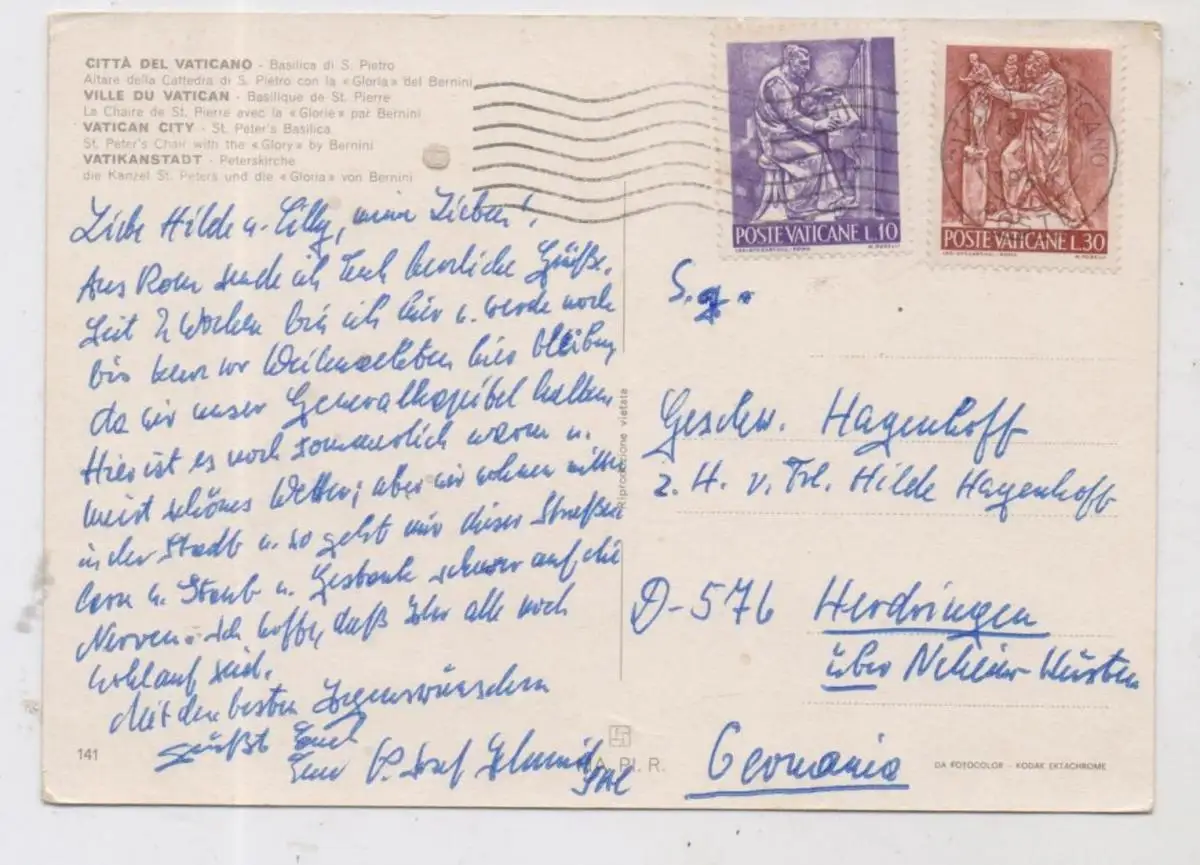 CITTÀ DEL VATICANO - Basilica di S. Pietro
Altare della Cattedra di S. Pietro con la «Gloria» del Bernini
VILLE DU VATICAN - Basilique de St. Pierre
La Chaire de St. Pierre avec la «Glorie» par Bernini
VATICAN CITY - St. Peter's Basilica
St. Peter's Chair with the «Glory» by Bernini
VATIKANSTADT - Peterskirche
die Kanzel St. Peters und die «Gloria» von Bernini
Liebe Hilde u. Cilly, meine Lieben!
Aus Rom sende ich Euch herzliche Grüße.
Seit 2 Wochen bin ich hier u. werde noch
bis kurz vor Weihnachten hier bleiben,
da wir unser Generalkapitel halten.
Hier ist es noch sommerlich warm u.
meist schönes Wetter; aber wir wohnen mitten
in der Stadt u. so geht mir dieser Straßen
lärm u. Staub u. Gestank schwer auf die
Nerven. Ich hoffe, daß Ihr alle noch
wohlauf seid.
Mit den besten Segenswünschen
grüßt Euch
Euer P. Josef Schmid
141
Riproduzione vietata
POSTE VATICANE L.10
POSTE VATICANE L.30
S. g.
Geschw. Hagenhoff
z. H. v. Frl. Hilde Hagenhoff
D-576 Herdringen
über Neheim-Hüsten
Germania
PI. R.
DA FOTOCOLOR - KODAK EKTACHROME